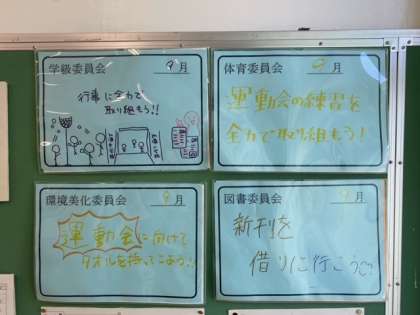 学級委員会 9月
行事に全力で
取り組もう!!
体育委員会 9月
運動会の練習を
全力で取り組もう!
環境美化委員会 9月
運動会に向けて
タオルを持ってこよう!!
図書委員会 9月
新刊を
借りに行こう